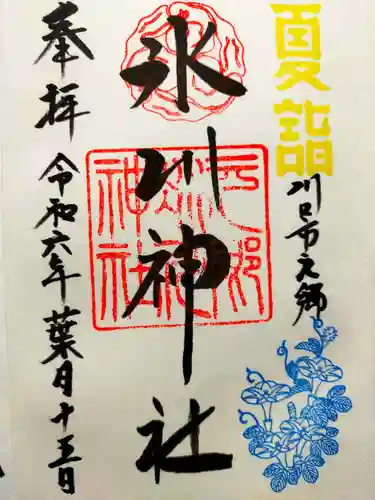 夏詣
川口市元郷
氷川神社
奉拝
令和六年葉月十五日
元郷
氷川
神社